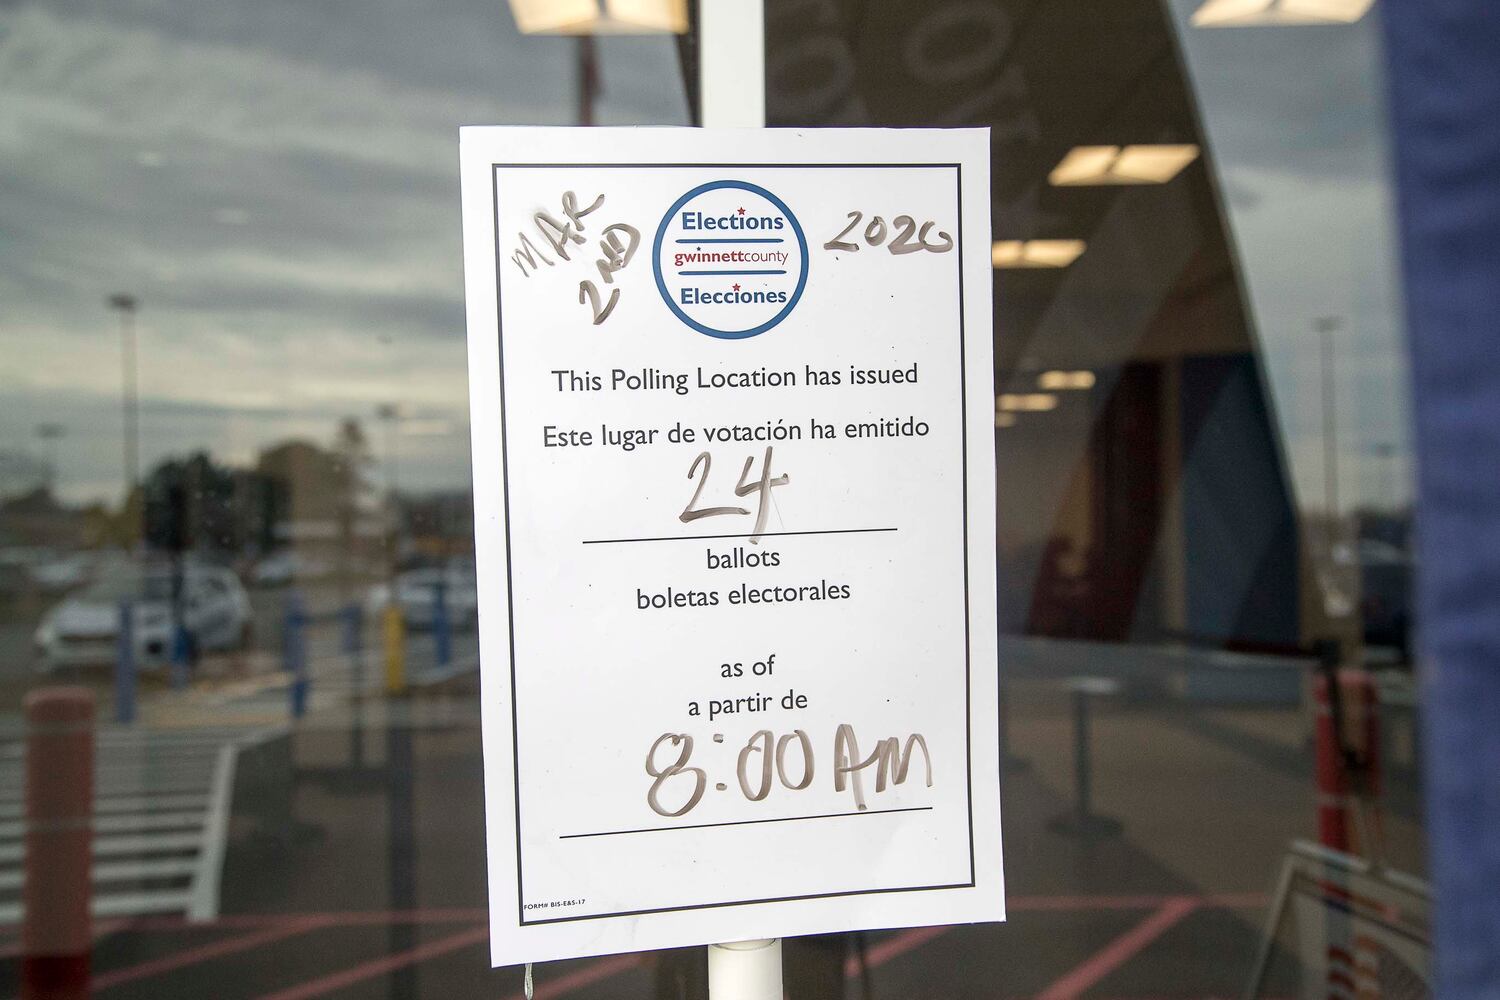 MAR
2ND
Elections
gwinnettcounty
Elecciones
2020
This Polling Location has issued
Este lugar de votación ha emitido
24
ballots
boletas electorales
as of
a partir de
8:00 AM
FORM# BIS-E&S-17